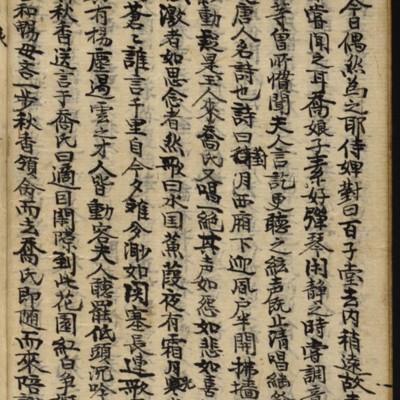 今日偶然為之耶侍婢對曰百子堂之内稍遠故
嘗聞之耳喬娘子素好彈琴閑静之時嘗調
等曾所慣聞夫人言訖更聽之絃声既止清唱継
是唐人名詩也詩曰待月西廂下迎風户半開拂墻
影動疑是玉人來喬氏又唱一絶其声如怨如悲如喜
激者如思念者然歌曰水国蒹葭夜有霜月
蒼〻誰言千里自今夕離夢渺如関塞長連歌
有楊塵遏雲之才人皆動容夫人聽罷低頭沉吟
秋香送言于喬氏曰適因閑隙到此花園紅白争
和暢毋吝一步秋香領命而去喬氏即随而來陪